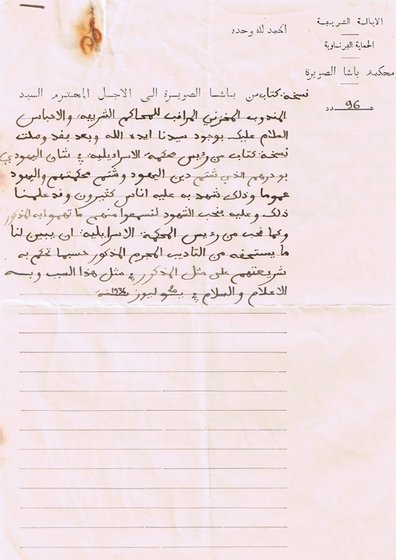 الايالة الشريفة
الحماية الفرنساوية
محكمة باشا الصويرة
عدد 96
الحمد لله وحده
نسخة كتاب من باشا الصويرة الى الاجل المحترم السيد
المندوب المخزني المراقب للمحاكم الشرعية والاحباس
السلام عليك بوجود سيدنا ايده الله وبعد فقد وصلت
نسخة كتاب من رءيس محكمة الاسراءيلية في شان اليهودي
بودرهم الذي شتم دين اليهود وشتم محكمتهم واليهود
عموما وذلك شهد به عليه اناس كثيرون وقد علمنا
ذلك وعليه نحب الشهود لنسمعوا منهم ما تهم به المذكور
وكما نحب من رءيس المحكمة الاسراءيلية ان يبين لنا
ما يستحقه من التاديب المجرم المذكور حسبما تحكم به
شريعتهم على مثل المذكور في مثل هذا السب وبه
الاعلام والسلام في يوليوز سنة